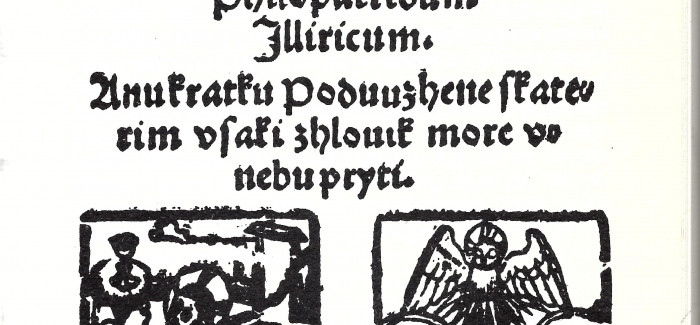 Philopatridum
Illiricum.
Anu kratku Poduuzhene ſkate⸗
rim vſaki zhlouik more v⸗
nebu pryti.